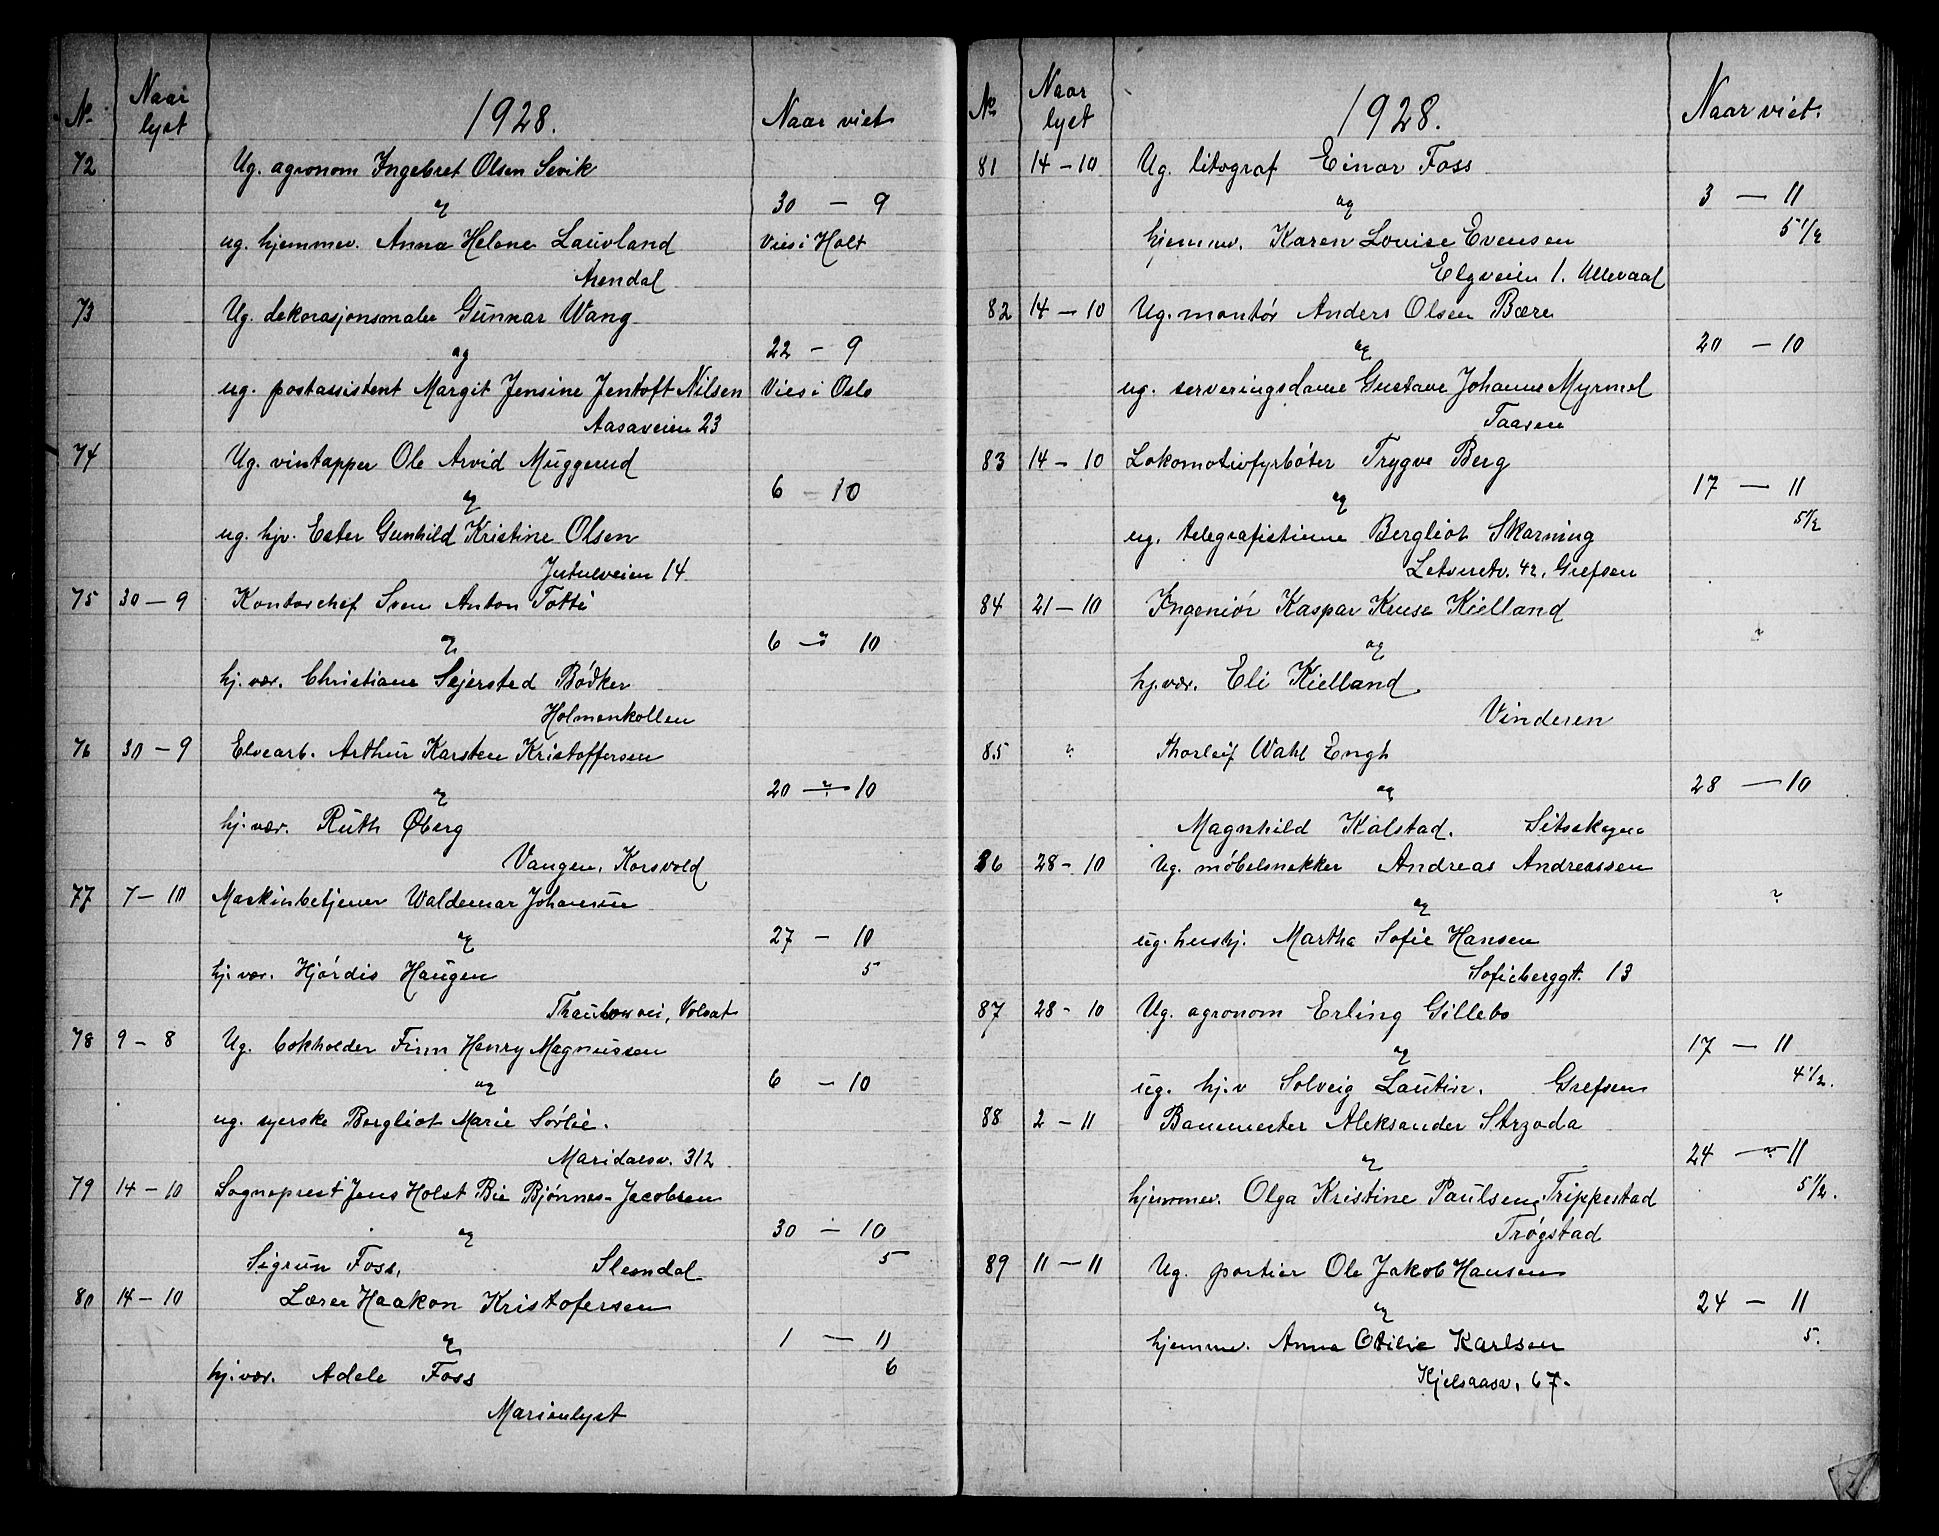 No Naar lyst 1928. Naar viet
72 Ug. agronom Ingebret Olsen Sevik
og 30 — 9
ug. hjemmev. Anna Helene Lauvland Vies i Holt
Arendal
73 Ug. dekorasjonsmaler Gunnar Wang
og 22 – 9
ug. postassistent Margit Jensine Jentoft Nilsen Vies i Oslo
Aasaveien 23
74 Ug. vintapper Ole Arvid Muggerud
og 6 – 10
ug. hjv. Ester Gunhild Kristine Olsen
Jutulveien 14
75 30 – 9 Kontorchef Sven Anton Totti
og 6 –?– 10
hj. vær. Christiane Sejersted Bødker
Holmenkollen
76 30 – 9 Elvearb. Arthur Karsten Kristoffersen
og 20 –?– 10
hj. vær. Ruth Øberg
Vangen, Korsvold
77 7 – 10 Maskinbetjener Waldemar Johansen
og 27 – 10
hj. vær. Hjørdis Haugen 5
Thaulow vei, Volvat
78 9 – 8 Ug. bokholder Finn Henry Magnussen
og 6 – 10
ug. syerske Bergliot Marie Sørlie.
Maridalsv. 312
79 14 – 10 Sogneprest Jens Holst Bie Bjønnes-Jacobsen
og 30 – 10
Sigrun Foss, Slemdal 5
80 14 – 10 Lærer Haakon Kristofersen
og 1 — 11
hj. vær. Adele Foss 6
Marienlyst
No Naar lyst 1928. Naar viet.
81 14 – 10 Ug. litograf Einar Foss
og 3 — 11
hjemmv. Karen Louise Evensen 5 1/2
Elgveien 1. Ullevaal
82 14 – 10 Ug. montør Anders Olsen Bære
og 20 – 10
ug. serveringsdame Gustava Johanne Myrmel
Taasen
83 14 – 10 Lokomotivfyrbøter Trygve Berg
og 17 — 11
ug. telegrafistinne Bergliot Skarning 5 1/2
42, Grefsen
84 21 – 10 Ingeniør Kaspar Kruse Kielland
og ?
hj. vær. Eli Kielland
Vinderen
85 ? Thorleif Wahl Engh
og 28 — 10
Magnhild Kalstad.
86 28 – 10 Ug. møbelsnekker Andreas Andreassen
og ?
ug. hushj. Martha Sofie Hansen
Sofiebergt. 13
87 28 – 10 Ug. agronom Erling Gillebo
og 17 — 11
ug. hj. v Solveig Lautin. Grefsen 4 1/2.
88 2 – 11 Banemester Aleksander Strzoda
og 24 –?– 11
hjemmev. Olga Kristine Paulseng Trippestad 5 1/2.
Trøgstad
89 11 – 11 Ug. portier Ole Jakob Hansen
og 24 – 11
hjemmv. Anna Otilie Karlsen 5.
Kjelsaasv. 67.